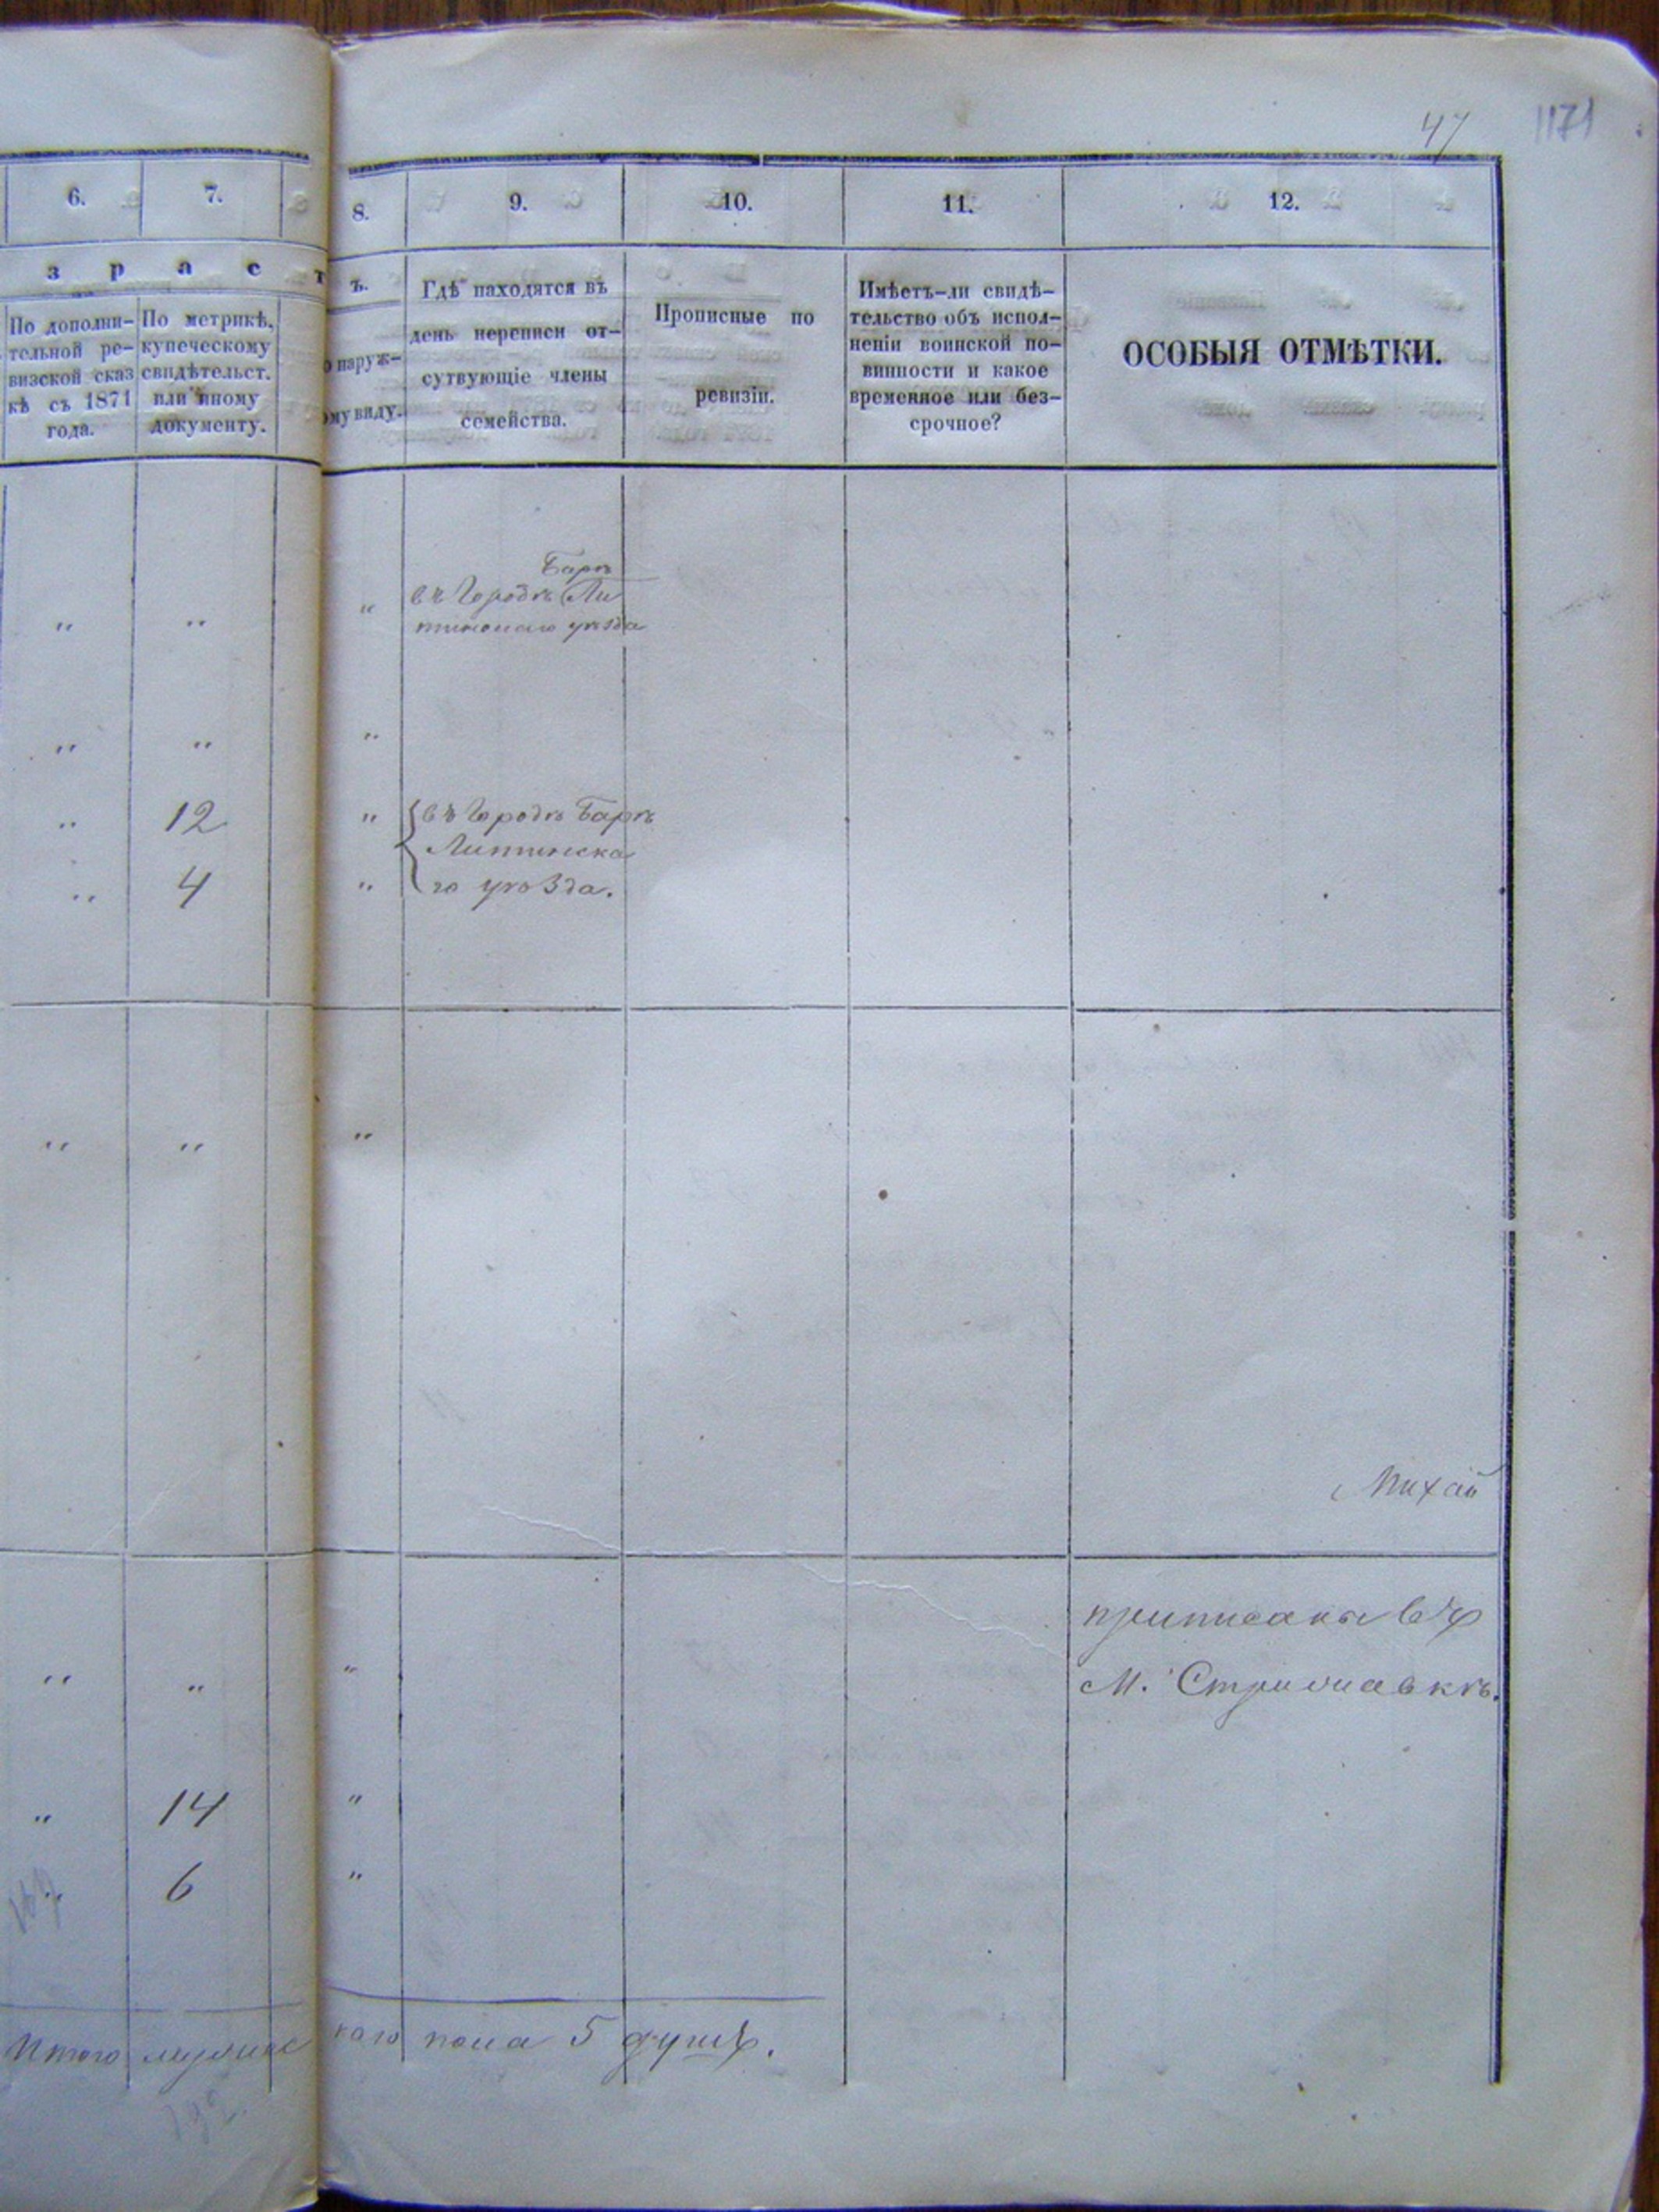 47 1171
6. 7. 8. 9. 10. 11. 12.
з р а с т ъ.
По дополни-
тельной ре-
визской сказ
кѣ съ 1871
года.
По метрикѣ,
купеческому
свидѣтельст.
или иному
документу.
о наруж-
ому виду.
Гдѣ находятся въ
день переписи от-
сутвующіе члены
семейства.
Прописные по
ревизіи.
Имѣетъ-ли свидѣ-
тельство объ испол-
неніи воинской по-
винности и какое
временное или без-
срочное?
ОСОБЫЯ ОТМѢТКИ.
Барѣ
" " " въ Городѣ Ли
тинскаго уѣзда
" " "
" 12 " въ Городѣ Барѣ
Литинска
" 4 " го уѣзда.
" " "
Михай
приписаны въ
" " " М. Стрижавкѣ.
" 14 "
" 6 "
Итого мужескаго пола 5 душъ.